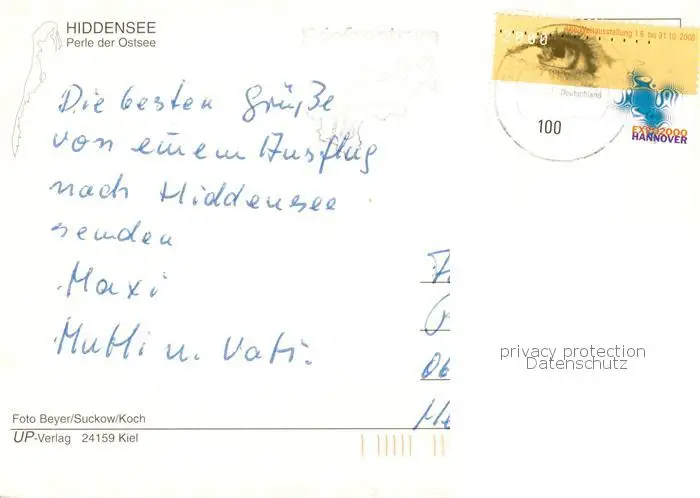 HIDDENSEE
Perle der Ostsee
Die besten Grüße
von einem Ausflug
nach Hiddensee
senden
Maxi
Mutti u. Vati.
Foto Beyer/Suckow/Koch
UP-Verlag 24159 Kiel
Weltausstellung 1.6. bis 31.10.2000
Deutschland
100
EXPO2000
HANNOVER
06
privacy protection
Datenschutz